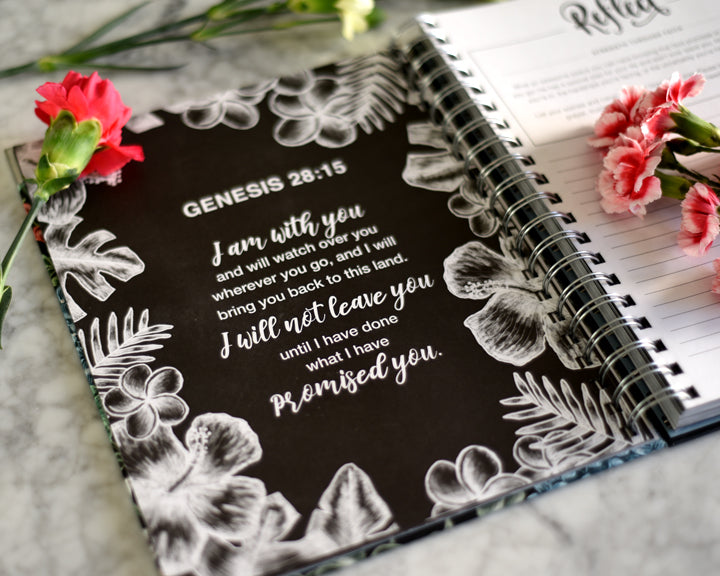 GENESIS 28:15
I am with you
and will watch over you
wherever you go, and I will
bring you back to this land.
I will not leave you
until I have done
what I have
promised you.
Reflect
STRENGTH THROUGH FAITH